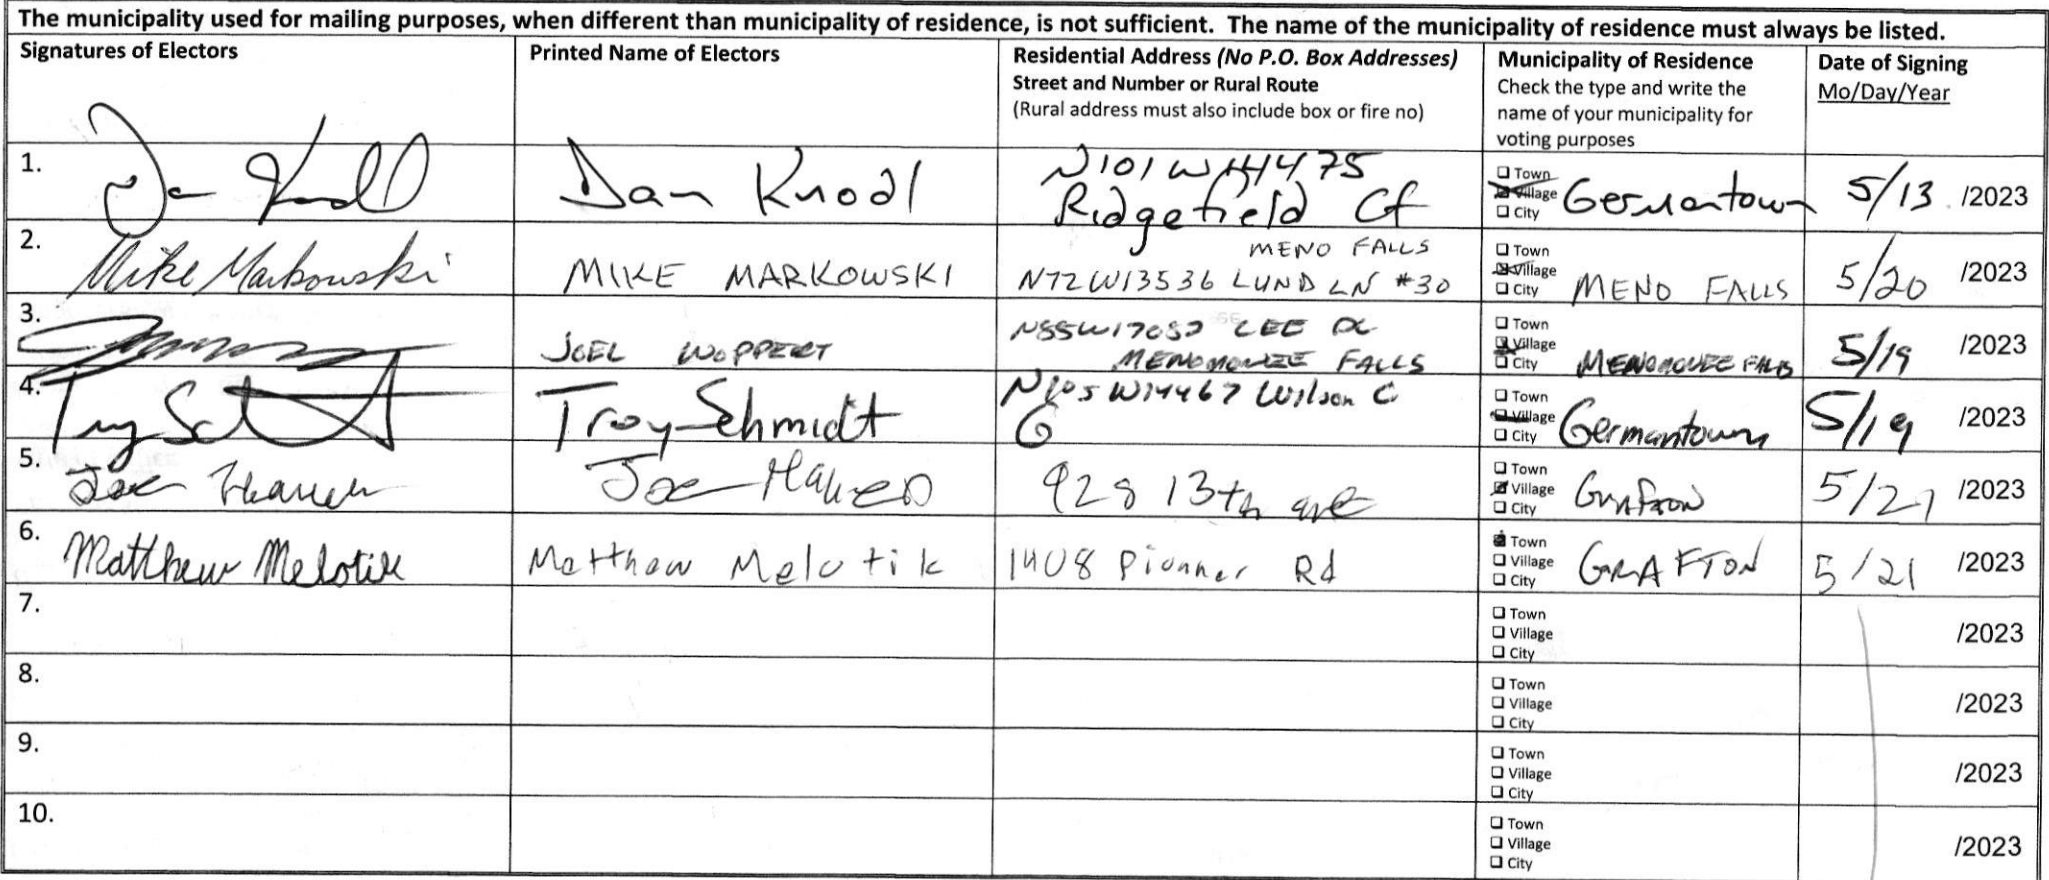 The municipality used for mailing purposes, when different than municipality of residence, is not sufficient. The name of the municipality of residence must always be listed.
Signatures of Electors
Printed Name of Electors
Residential Address (No P.O. Box Addresses)
Street and Number or Rural Route
(Rural address must also include box or fire no)
Municipality of Residence
Check the type and write the
name of your municipality for
voting purposes
Date of Signing
Mo/Day/Year
1.
Dan Knodl
N101 W14475
Ridgefield Ct
Town
Village
City
Germantown
5/13 /2023
2.
Mike Markowski
MIKE MARKOWSKI
MENO FALLS
N72W13536 LUND LN #30
Town
Village
City
MENO FALLS
5/20 /2023
3.
JOEL WOPPERT
LEE
MENOMONEE FALLS
Town
Village
City
MENOMONEE FALLS
5/19 /2023
4.
Troy Schmidt
N105 W14467 Wilson C
G
Town
Village
City
Germantown
5/19 /2023
5.
Joe
Joe
928 13th ave
Town
Village
City
Grafton
5/21 /2023
6.
Matthew Melotik
Matthew Melotik
1408 Pionner Rd
Town
Village
City
GRAFTON
5/21 /2023
7.
Town
Village
City
/2023
8.
Town
Village
City
/2023
9.
Town
Village
City
/2023
10.
Town
Village
City
/2023